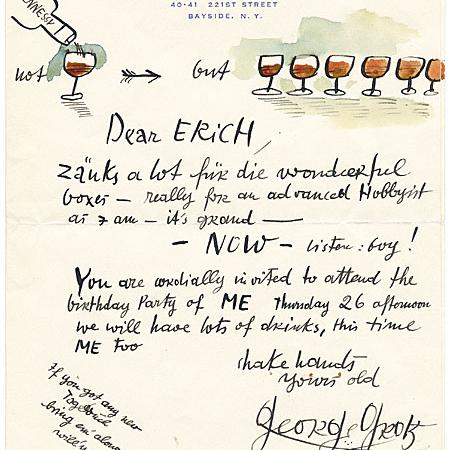 40-41 221ST STREET
BAYSIDE, N. Y.
HENNESSY
not but
Dear ERICH,
zänks a lot für die wonderful
boxes – really for an advanced Hobbyist
as I am – it's grand —
– NOW – listen : boy !
You are cordially invited to attend the
birthday Party of ME Thursday 26 afternoon
we will have lots of drinks, this time
ME too
shake hands
yours old
George Grosz
If you got any new
bring em along